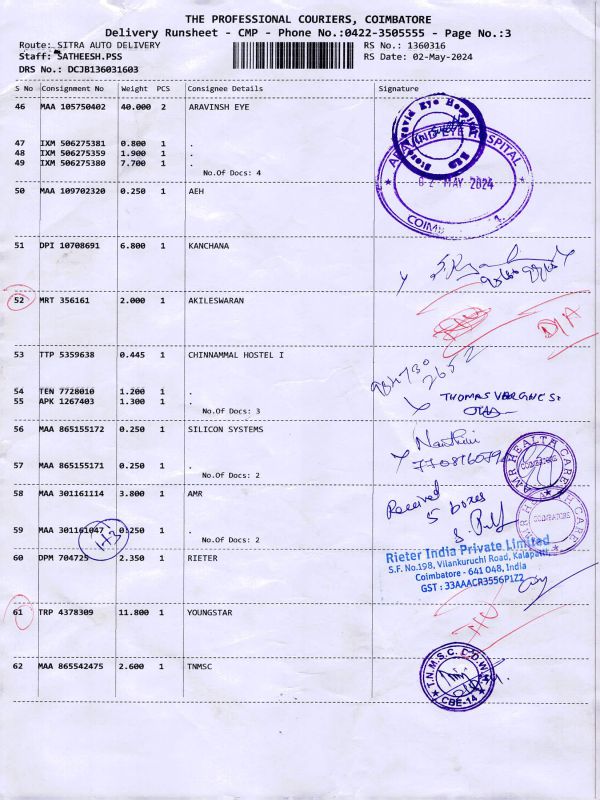 THE PROFESSIONAL COURIERS, COIMBATORE
Delivery Runsheet - CMP - Phone No.:0422-3505555 - Page No.:3
Route: SITRA AUTO DELIVERY
RS No.: 1360316
Staff: SATHEESH.PSS
RS Date: 02-May-2024
DRS No.: DCJB136031603
S No Consignment No Weight PCS Consignee Details Signature
46 MAA 105750402 40.000 2 ARAVINSH EYE
47 IXM 506275381 0.800 1 .
48 IXM 506275359 1.900 1 .
49 IXM 506275380 7.700 1 .
No.Of Docs: 4
ARAVIND EYE HOSPITAL
02 MAY 2024
50 MAA 109702320 0.250 1 AEH
51 DPI 10708691 6.800 1 KANCHANA
52 MRT 356161 2.000 1 AKILESWARAN
D/A
53 TTP 5359638 0.445 1 CHINNAMMAL HOSTEL I
54 TEN 7728010 1.200 1 .
55 APK 1267403 1.300 1 .
No.Of Docs: 3
56 MAA 865155172 0.250 1 SILICON SYSTEMS
57 MAA 865155171 0.250 1 .
No.Of Docs: 2
AMR HEALTH CARE
COIMBATORE
58 MAA 301161114 3.800 1 AMR
Received
5 boxes
COIMBATORE
59 MAA 301161047 0.250 1 .
1+3
No.Of Docs: 2
60 DPM 704725 2.350 1 RIETER
Rieter India Private Limited
S.F. No.198, Vilankuruchi Road, Kalapatti,
Coimbatore - 641 048, India
GST : 33AAACR3556P1ZZ
61 TRP 4378309 11.800 1 YOUNGSTAR
62 MAA 865542475 2.600 1 TNMSC
CBE-14